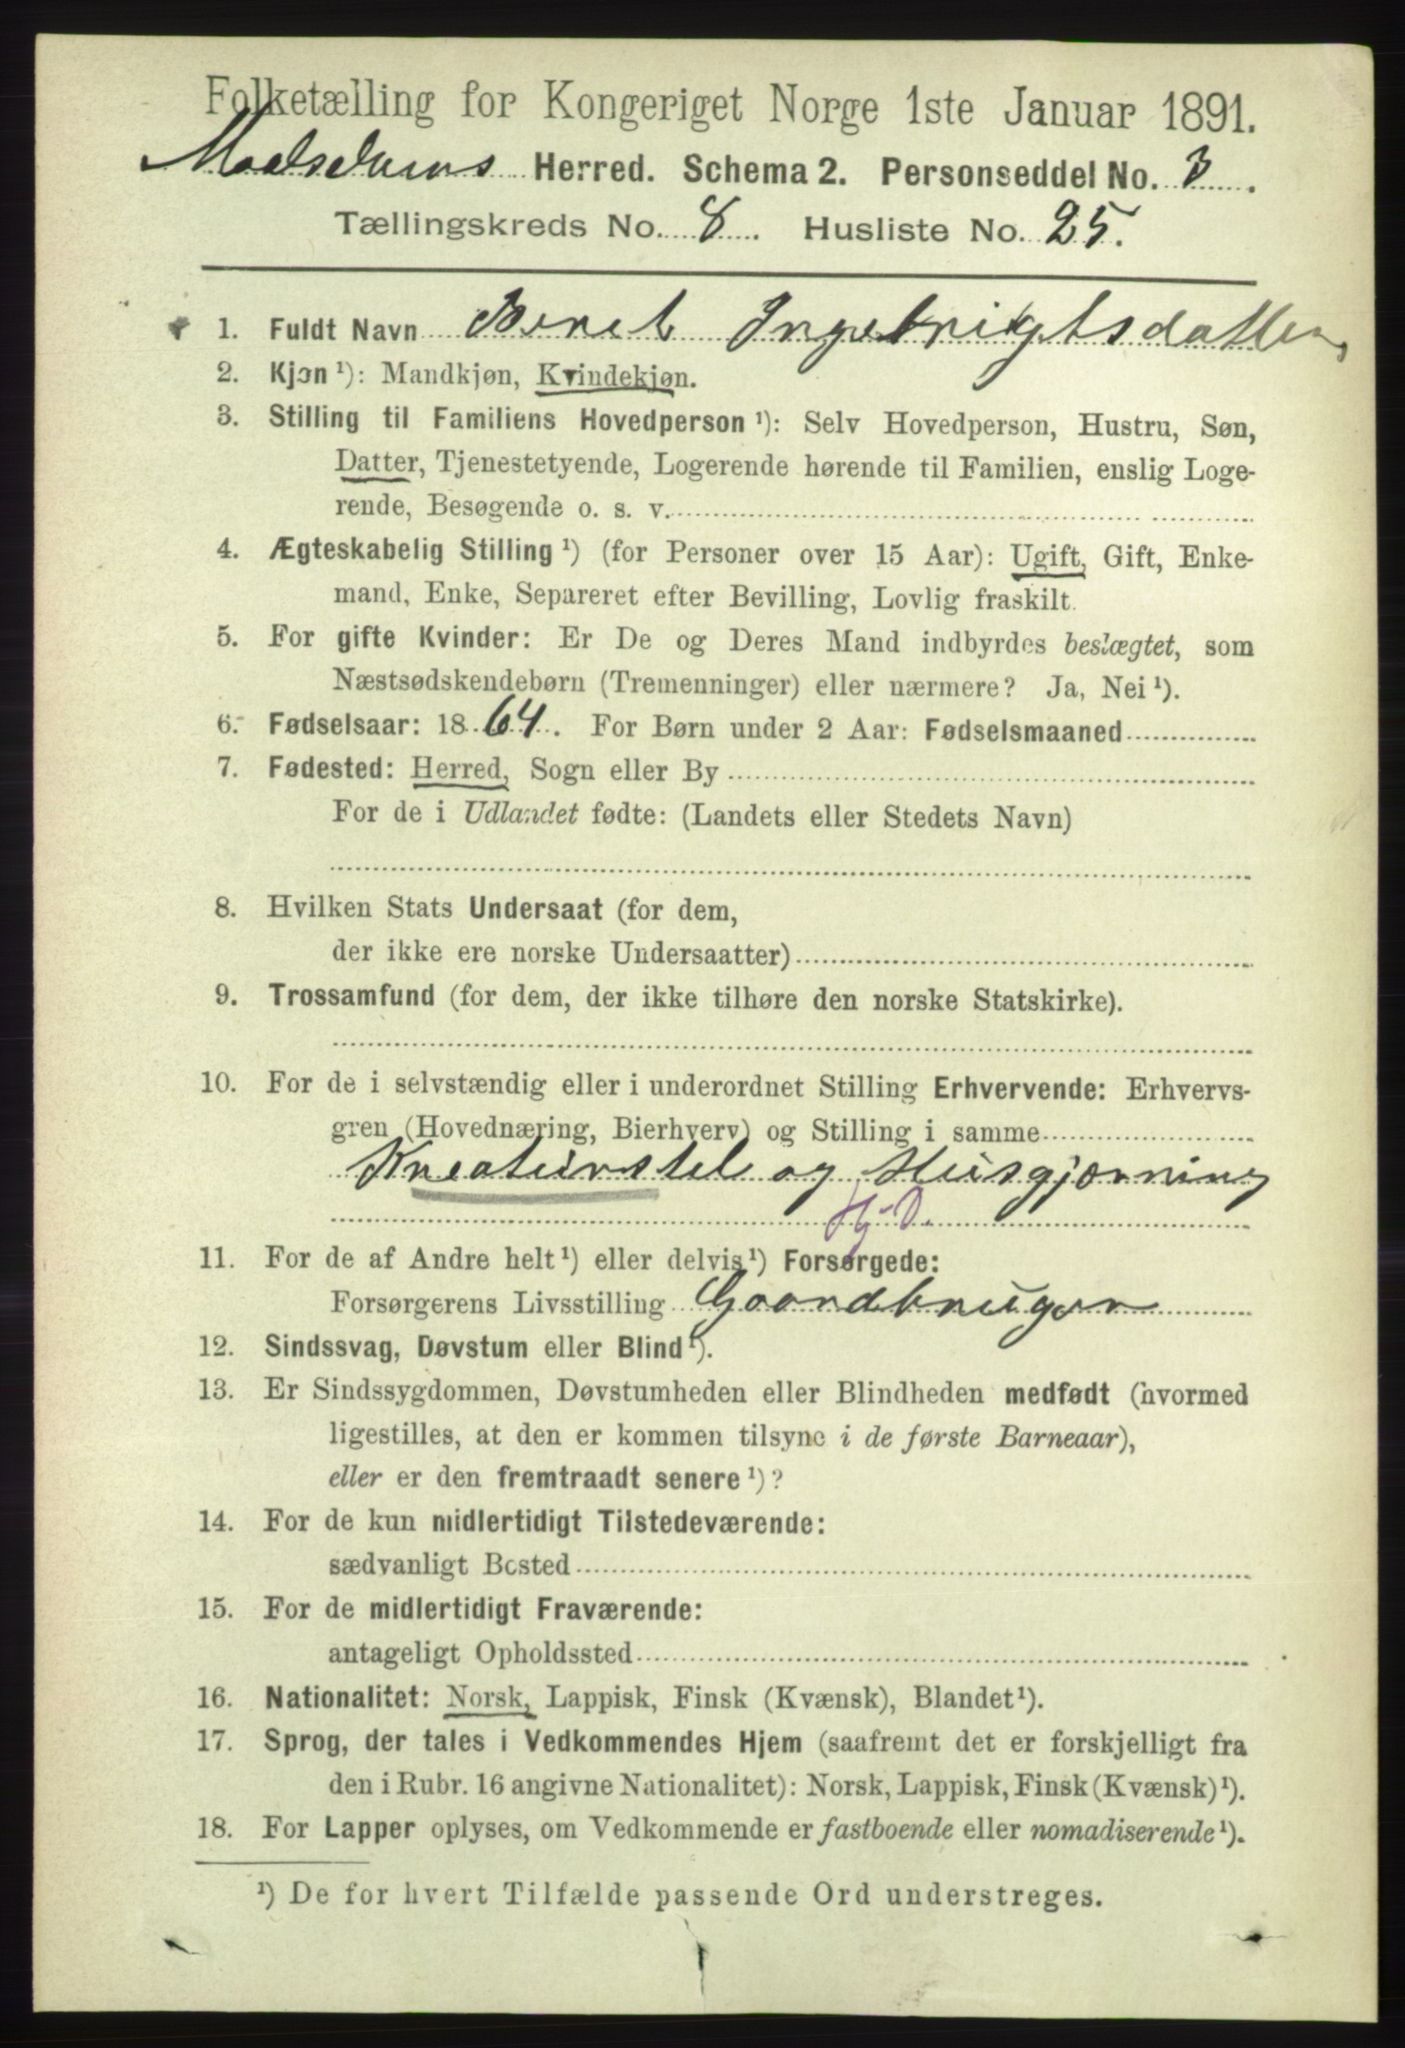 Folketælling for Kongeriget Norge 1ste Januar 1891.
Maalselvens Herred. Schema 2. Personseddel No. 3.
Tællingskreds No. 8. Husliste No. 25.
1. Fuldt Navn Beret Ingebrigtsdatter
2. Kjøn ¹): Mandkjøn, Kvindekjøn.
3. Stilling til Familiens Hovedperson ¹): Selv Hovedperson, Hustru, Søn,
Datter, Tjenestetyende, Logerende hørende til Familien, enslig Loge-
rende, Besøgende o. s. v.
4. Ægteskabelig Stilling ¹) (for Personer over 15 Aar): Ugift, Gift, Enke-
mand, Enke, Separeret efter Bevilling, Lovlig fraskilt.
5. For gifte Kvinder: Er De og Deres Mand indbyrdes beslægtet, som
Næstsødskendebørn (Tremenninger) eller nærmere? Ja, Nei ¹).
6. Fødselsaar: 1864. For Børn under 2 Aar: Fødselsmaaned
7. Fødested: Herred, Sogn eller By
For de i Udlandet fødte: (Landets eller Stedets Navn)
8. Hvilken Stats Undersaat (for dem,
der ikke ere norske Undersaatter)
9. Trossamfund (for dem, der ikke tilhøre den norske Statskirke).
10. For de i selvstændig eller i underordnet Stilling Erhvervende: Erhvervs-
gren (Hovednæring, Bierhverv) og Stilling i samme
Kreaturstel og Husgjærning
Hj-D.
11. For de af Andre helt ¹) eller delvis ¹) Forsørgede:
Forsørgerens Livsstilling Gaardbruger
12. Sindssvag, Døvstum eller Blind ¹).
13. Er Sindssygdommen, Døvstumheden eller Blindheden medfødt (hvormed
ligestilles, at den er kommen tilsyne i de første Barneaar),
eller er den fremtraadt senere ¹)?
14. For de kun midlertidigt Tilstedeværende:
sædvanligt Bosted
15. For de midlertidigt Fraværende:
antageligt Opholdssted
16. Nationalitet: Norsk, Lappisk, Finsk (Kvænsk), Blandet ¹).
17. Sprog, der tales i Vedkommendes Hjem (saafremt det er forskjelligt fra
den i Rubr. 16 angivne Nationalitet): Norsk, Lappisk, Finsk (Kvænsk) ¹).
18. For Lapper oplyses, om Vedkommende er fastboende eller nomadiserende ¹).
¹) De for hvert Tilfælde passende Ord understreges.